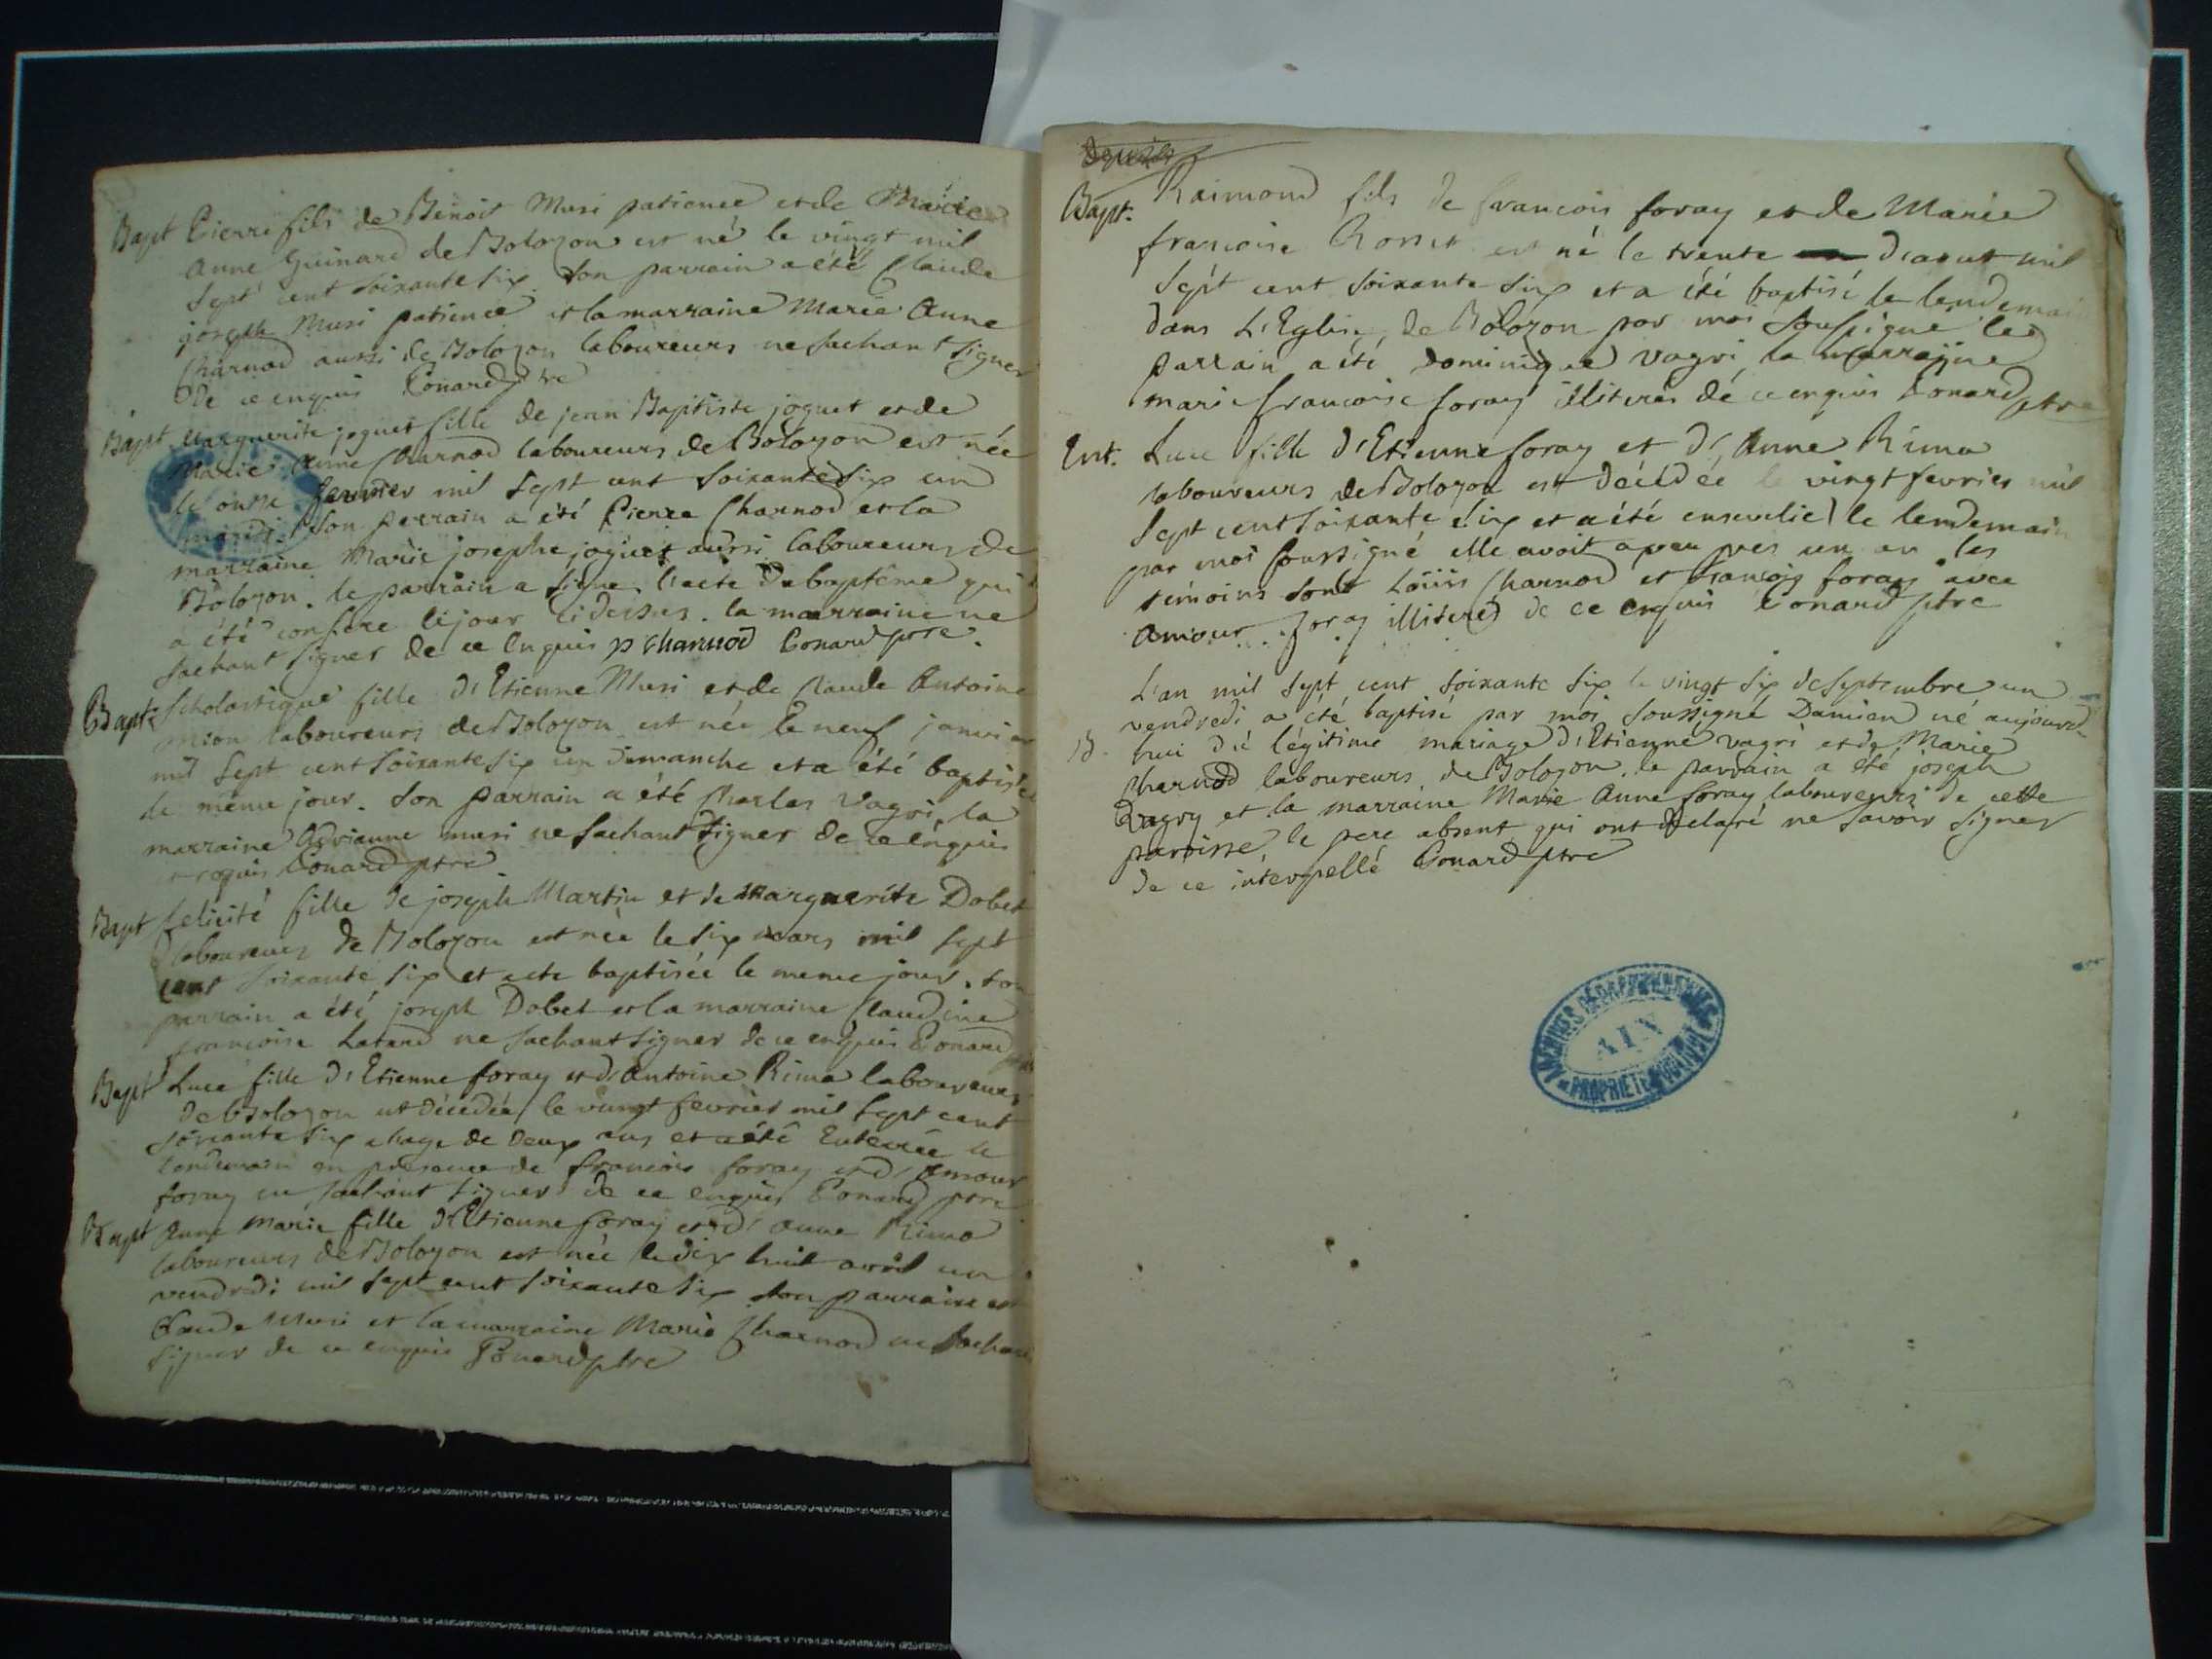 Bapt Pierre fils de Benoit Musi patience et de Marie
Anne Guinard de Bolozon est né le vingt mil
Sept cent soixante six. Son parrain a été Claude
joseph Musi patience et la marraine Marie Anne
Charnod aussi de Bolozon laboureurs ne sachant signer
De ce enquis Conard ptre
Bapt Marguerite joguet fille de jean Baptiste joguet et de
Marie Anne Charnod laboureurs de Bolozon est née
le onze fevrier mil sept cent soixante six un
mardi. Son parrain a été Pierre Charnod et la
marraine Marie josephe joguet aussi laboureurs de
Bolozon. le parrain a signé l'acte de baptême qui
a été confere le jour ci dessus. la marraine ne
sachant signer de ce enquis p charnod Conard ptre.
Bapt. Scholastique fille d'Etienne Musi et de Claude Antoine
mion laboureurs de Bolozon est née le neuf janvier
mil sept cent soixante six un dimanche et a été baptisée
le même jour. Son parrain a été Charles Vagri, la
marraine Adrianne musi ne sachant signer de ce enquis
et requis Conard ptre
Bapt felicité fille de joseph Martin et de marguerite Dobet
laboureurs de Bolozon est née le six mars mil sept
cent soixante six et a ete baptisée le meme jour. son
parrain a été joseph Dobet et la marraine Claudine
francoise ne sachant signer de ce enquis Conard ptre
Bapt Luce fille d'Etienne foray et d'Antoine Rima laboureurs
de Bolozon est décédée le vingt fevrier mil sept cent
soixante six a l'age de deux ans et a été Enterrée le
lendemain en presence de francois foray et d'Amour
foray ne sachant signer de ce enquis Conard ptre
Bapt Anne Marie fille d'Etienne foray et d'anne Rima
laboureurs de Bolozon est née le dix huit avril un
vendredi mil sept cent soixante six son parrain est
Claude Musi et la marraine Marie Charnod ne sachant
signer de ce enquis Conard ptre
Bapt. Raimond fils de francois foray et de Marie
francoise Rosset est né le trente d'aout mil
Sept cent soixante six et a été baptisé le lendemain
dans L'Eglise de Bolozon par moi soussigné le
parrain a été dominique vagri, la marraine
marie francoise foray illiterés de ce enquis Conard ptre
Ent. Luce fille d'Etienne foray et d'Anne Rima
laboureurs de Bolozon est décédée le vingt fevrier mil
Sept cent soixante six et a été ensevelie le lendemain
par moi soussigné elle avoit a peu pres un an les
témoins sont Loüis Charnod et francois foray avec
Amour foray illiteres de ce enquis Conard ptre
L'an mil sept cent soixante six le vingt six de septembre un
vendredi a été baptisé par moi soussigné Damien né aujourd-
B. hui du légitime mariage d'Etienne vagri et de Marie
Charnod laboureurs de Bolozon. le parrain a été joseph
vagry et la marraine Marie Anne foray laboureurs de cette
paroisse, le pere absent qui ont declaré ne savoir signer
de ce interpellé Conard ptre
ARCHIVES DÉPARTEMENTALES
AIN
PROPRIÉTÉ PUBLIQUE